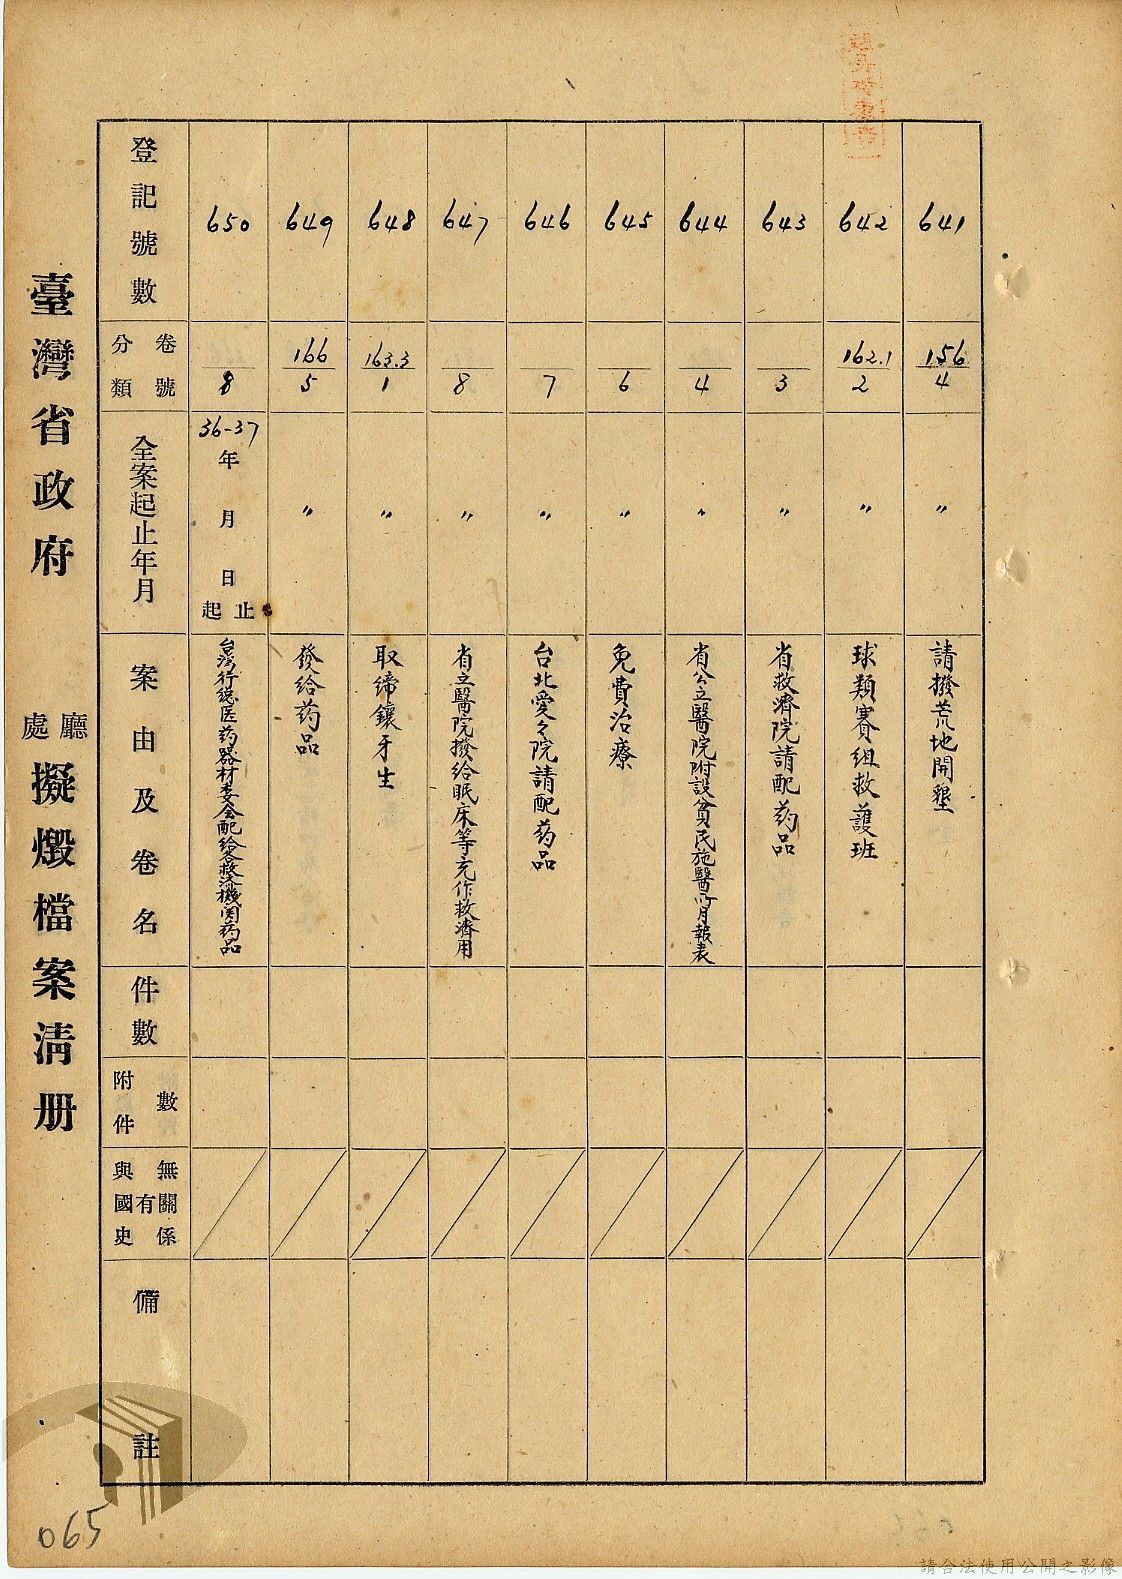 臺灣省政府
廳處
擬燬檔案清册
登記號數
卷號
分類
全案起止年月
案由及卷名
件數
附件數
與國史有無關係
備註
650
8
36-37
年
月
日
起止
台灣行總医药器材委会配給各救济機関药品
649
166
5
〃
發給药品
648
163.3
1
〃
取締鑲牙生
647
8
〃
省立醫院撥給眠床等充作救濟用
646
7
〃
台北愛々院請配药品
645
6
〃
免費治療
644
4
〃
省公立醫院附設貧民施醫所月報表
643
3
〃
省救濟院請配药品
642
162.1
2
〃
球類賽組救護班
641
156
4
〃
請撥荒地開墾
065
請合法使用公開之影像